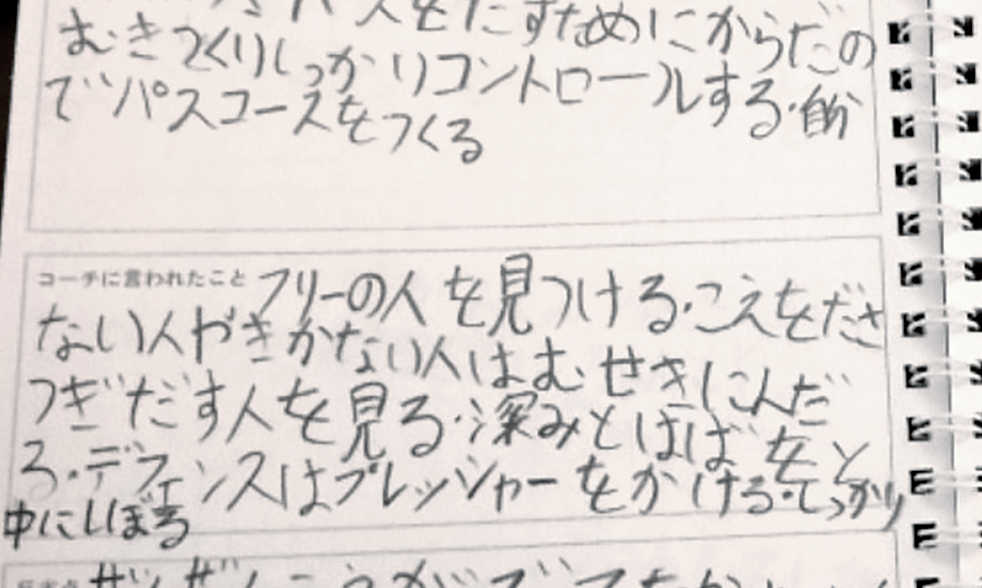 パスをだすためにからだの
むきつくりしっかりコントロールする・自分
でパスコースをつくる
コーチに言われたこと フリーの人を見つける・こえをださ
ない人やきかない人はむせきにんだ
つぎだす人を見る・深みとはばをと
ろ・ディフェンスはプレッシャーをかける・しっかり
中にしぼる